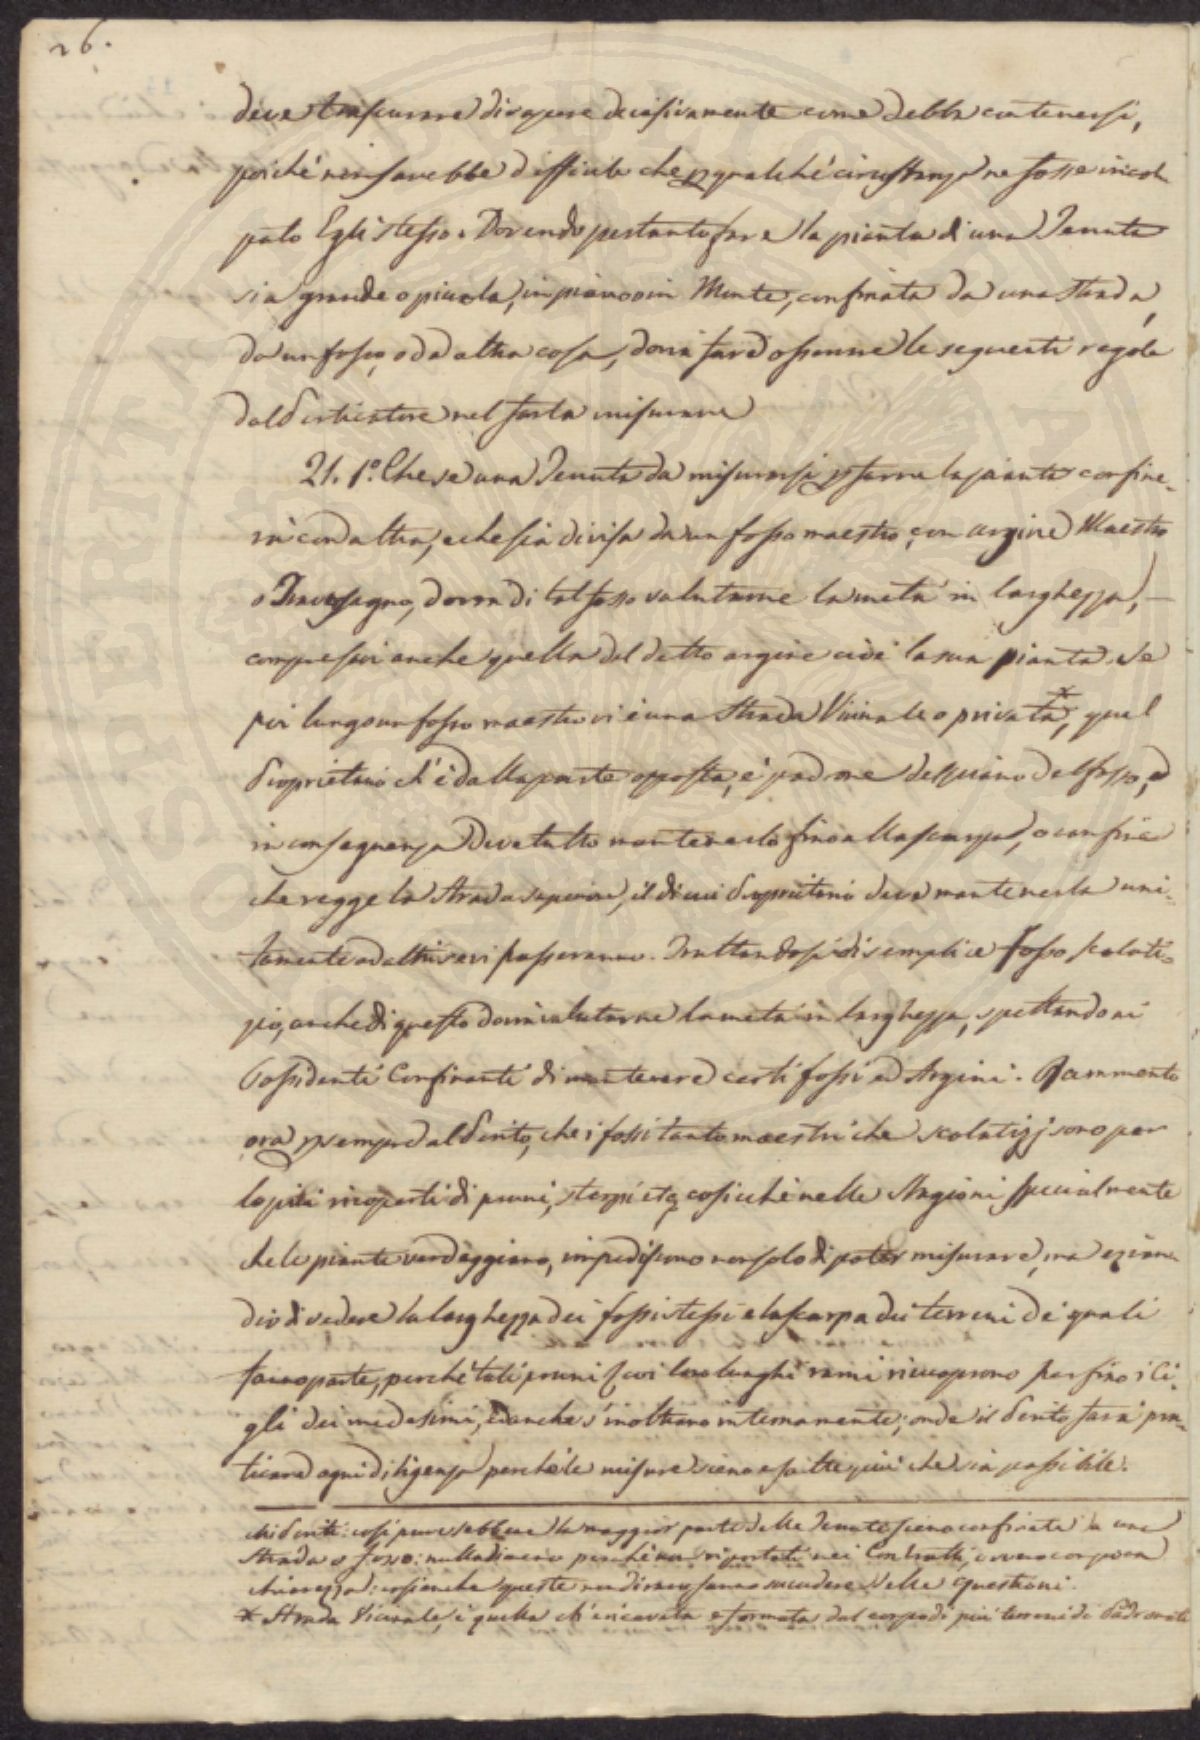 26.
deve trascurare di sapere decisivamente come debba contenersi,
poichè non sarebbe difficile che p qualche circostanza ne fosse incol=
pato Egli stesso. Dovendo pertanto fare la pianta di una Tenuta
sia grande o piccola, in piano o in Monte, confinata da una strada,
da un fosso, o da altra cosa, dovrà fare osservare le seguenti regole
dal Perticatore nel farla misurare
21. 1.º Che se una Tenuta da misurarsi p farne la pianta confine=
rà con altra, e che sia divisa da un fosso maestro, con argine Maestro
o Traversagno, dovrà di tal fosso valutarne la metà in larghezza,
compresovi anche quella del detto argine cioè la sua pianta. Se
poi lungo un fosso maestro vi è una strada Vicinale o privata*, quel
Proprietario ch'è dalla parte opposta, è padrone dell'piano del fosso, ed
in conseguenza deve tutto mantenerlo fino alla scarpa, o confine
che regge la strada superiore, il di cui Proprietario deve mantenerla uni=
tamente ad altri se vi passeranno. Trattandosi di semplice fosso scolati=
zio, anche di questo dovrà valutarne la metà in larghezza, spettando ai
Possidenti Confinanti di mantenere certi fossi ed Argini. Rammento
ora p sempre al Perito, che i fossi tanto maestri che scolatizj sono per
lo più ricoperti di pruni, sterpi etc cosicchè nelle Stagioni specialmente
che le piante verdeggiano, impediscono non solo di poter misurare, ma ezian=
dio di vedere la larghezza dei fossi stessi e la scarpa dei terreni de' quali
fanno parte, perchè tali pruni coi loro lunghi rami ricuoprono perfino i Ci=
gli dei medesimi, ed anche s'inoltrano internamente; onde il Perito farà pra=
ticare ogni diligenza perchè le misure sieno esatte più che sia possibile.
chi Periti: così pure sebbene la maggior parte delle Tenute sieno confinate da una
strada o fosso: nulladimeno perchè non riportati nei Contratti, ovvero con poca
chiarezza: così anche queste non di meno fanno succedere delle questioni.
* Strada Vicinale, è quella ch'è ricavata e formata dal corpo di più terreni di Padronati